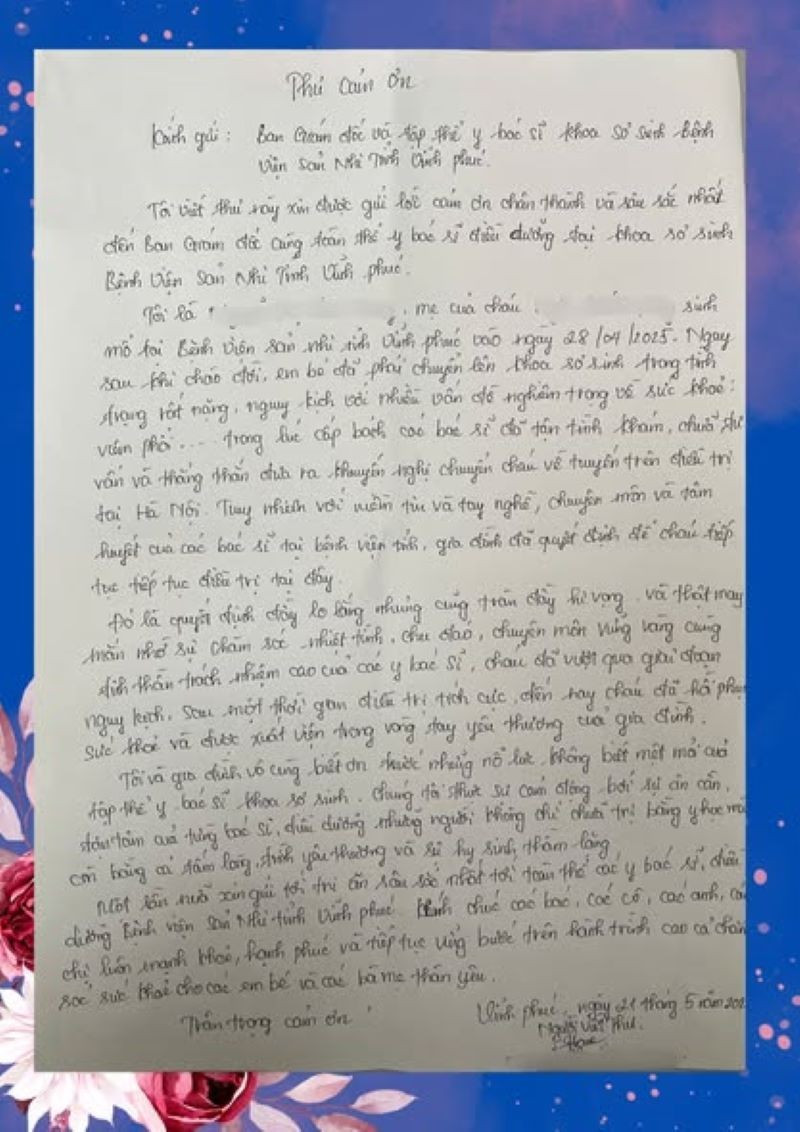 Thư cảm ơn
Kính gửi : Ban Giám đốc và tập thể y bác sĩ khoa sơ sinh Bệnh
Viện Sản Nhi Tỉnh Vĩnh Phúc.
Tôi viết thư này xin được gửi lời cảm ơn chân thành và sâu sắc nhất
đến Ban Giám đốc cùng toàn thể y bác sĩ điều dưỡng tại khoa sơ sinh
Bệnh Viện Sản Nhi Tỉnh Vĩnh Phúc.
Tôi là , mẹ của cháu sinh
mổ tại Bệnh Viện sản nhi tỉnh Vĩnh Phúc vào ngày 28/04/2025. Ngay
sau khi chào đời, em bé đã phải chuyển lên khoa sơ sinh trong tình
trạng rất nặng, nguy kịch với nhiều vấn đề nghiêm trọng về sức khoẻ :
viêm phổi ... trong lúc cấp bách các bác sĩ đã tận tình khám, chữa tư
vấn và thẳng thắn đưa ra khuyến nghị chuyển cháu về tuyến trên điều trị
tại Hà Nội. Tuy nhiên với niềm tin và tay nghề, chuyên môn và tâm
huyết của các bác sĩ tại bệnh viện tỉnh, gia đình đã quyết định để cháu tiếp
tục tiếp tục điều trị tại đây.
Đó là quyết định đầy lo lắng nhưng cũng tràn đầy hi vọng. và thật may
mắn nhờ sự chăm sóc nhiệt tình, chu đáo, chuyên môn vững vàng cùng
tinh thần trách nhiệm cao của các y bác sĩ, cháu đã vượt qua giai đoạn
nguy kịch, sau một thời gian điều trị tích cực, đến nay cháu đã hồi phục
sức khoẻ và được xuất viện trong vòng tay yêu thương của gia đình.
Tôi và gia đình vô cùng biết ơn trước những nỗ lực không biết mệt mỏi của
tập thể y bác sĩ khoa sơ sinh. Chúng tôi thực sự cảm động bởi sự ân cần,
tận tâm của từng bác sĩ, điều dưỡng những người không chỉ chữa trị bằng y học mà
còn bằng cả tấm lòng, tình yêu thương và sự hy sinh thầm lặng
Một lần nữa xin gửi tới tri ân sâu sắc nhất tới toàn thể các y bác sĩ, điều
dưỡng Bệnh viện Sản Nhi tỉnh Vĩnh Phúc. Kính chúc các bác, các cô, các anh, các
chị luôn mạnh khoẻ, hạnh phúc và tiếp tục vững bước trên hành trình cao cả chăm
sóc sức khoẻ cho các em bé và các bà mẹ thân yêu.
Trân trọng cảm ơn !
Vĩnh Phúc, ngày 21 tháng 5 năm 202
Người viết thư.